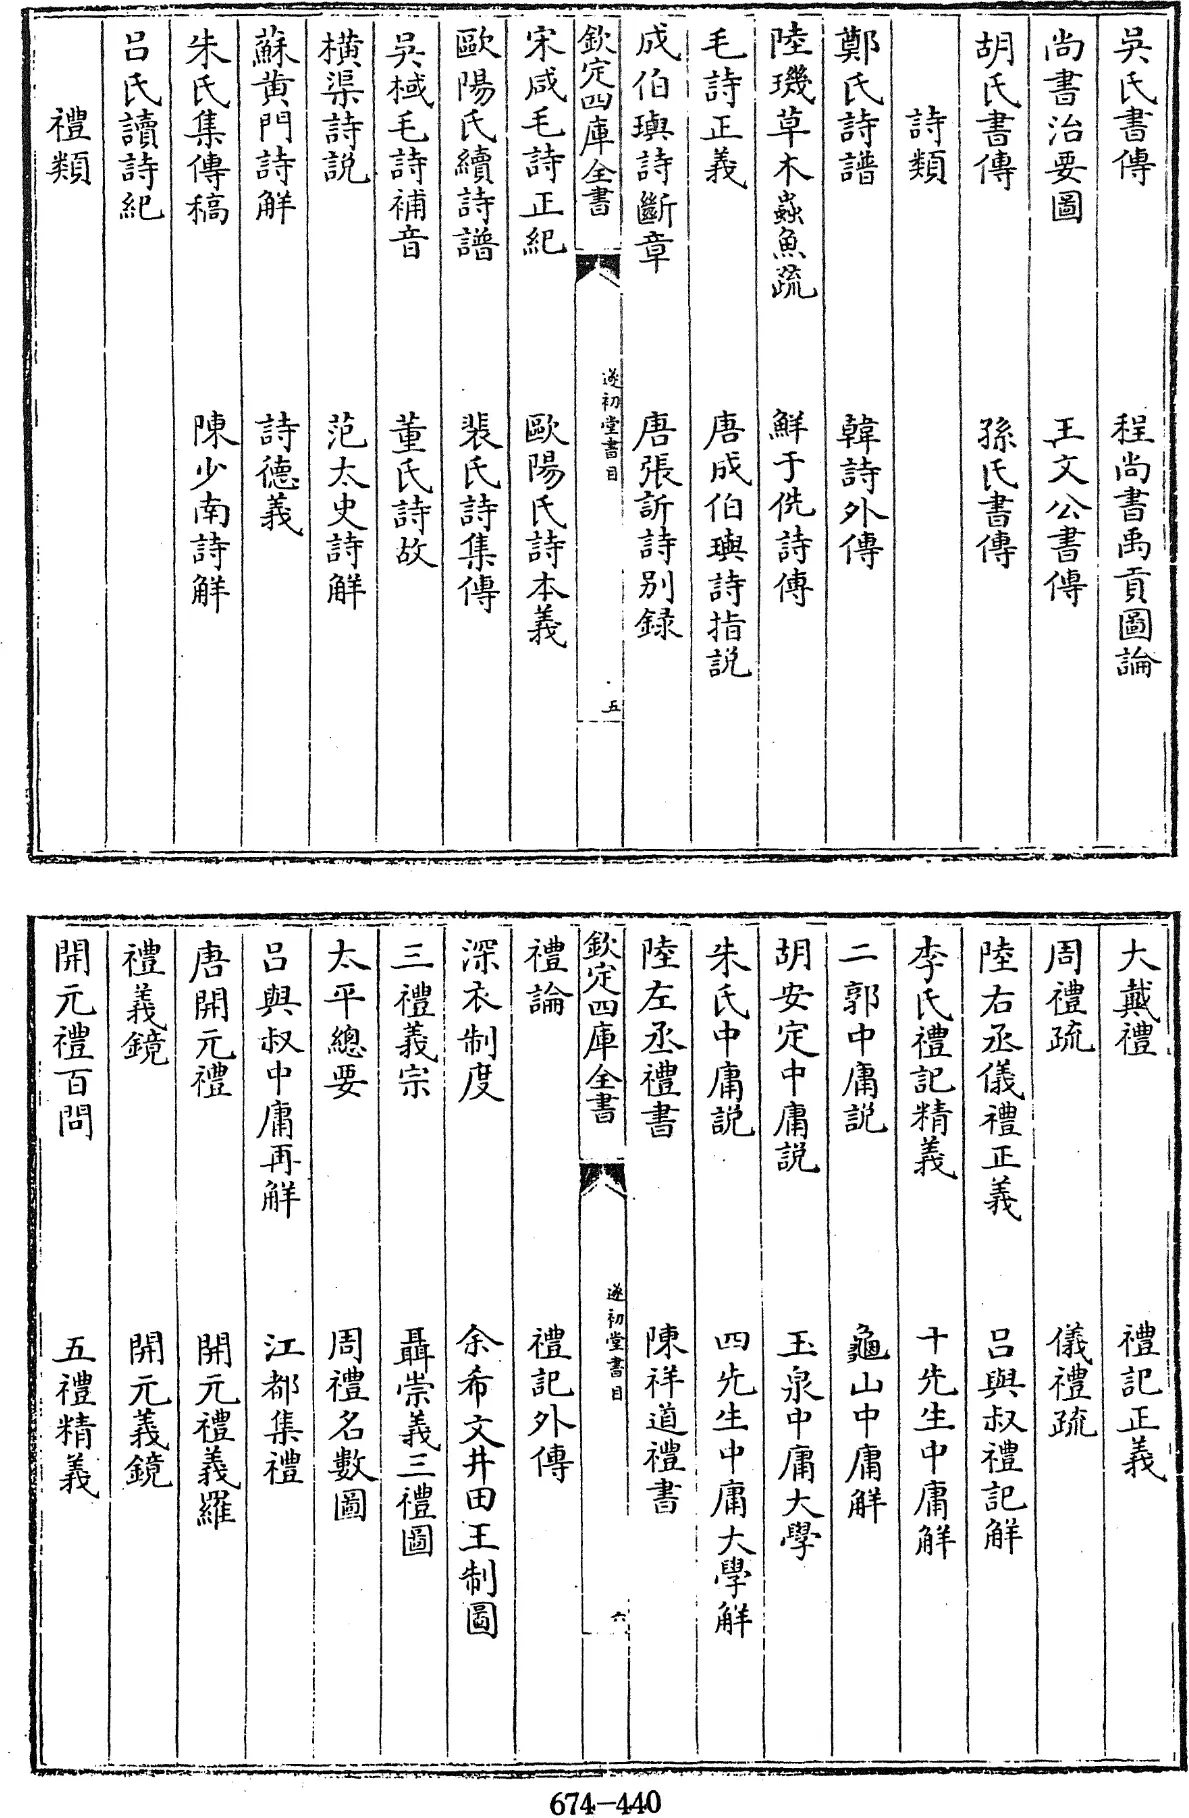 吳氏書傳　程尚書禹貢圖論
尚書治要圖　王文公書傳
胡氏書傳　孫氏書傳
詩類
鄭氏詩譜　韓詩外傳
陸璣草木蟲魚疏　鮮于侁詩傳
毛詩正義　唐成伯璵詩指説
成伯璵詩斷章　唐張訢詩别録
欽定四庫全書　遂初堂書目　五
宋咸毛詩正紀　歐陽氏詩本義
歐陽氏續詩譜　裴氏詩集傳
吳棫毛詩補音　董氏詩故
横渠詩説　范太史詩解
蘇黄門詩解　詩德義
朱氏集傳稿　陳少南詩解
吕氏讀詩紀
禮類
大戴禮　禮記正義
周禮疏　儀禮疏
陸右丞儀禮正義　吕與叔禮記解
李氏禮記精義　十先生中庸解
二郭中庸説　龜山中庸解
胡安定中庸説　玉泉中庸大學
朱氏中庸説　四先生中庸大學解
陸左丞禮書　陳祥道禮書
欽定四庫全書　遂初堂書目　六
禮論　禮記外傳
深衣制度　余希文井田王制圖
三禮義宗　聶崇義三禮圖
太平總要　周禮名數圖
吕與叔中庸再解　江都集禮
唐開元禮　開元禮義羅
禮義鏡　開元義鏡
開元禮百問　五禮精義
674-440